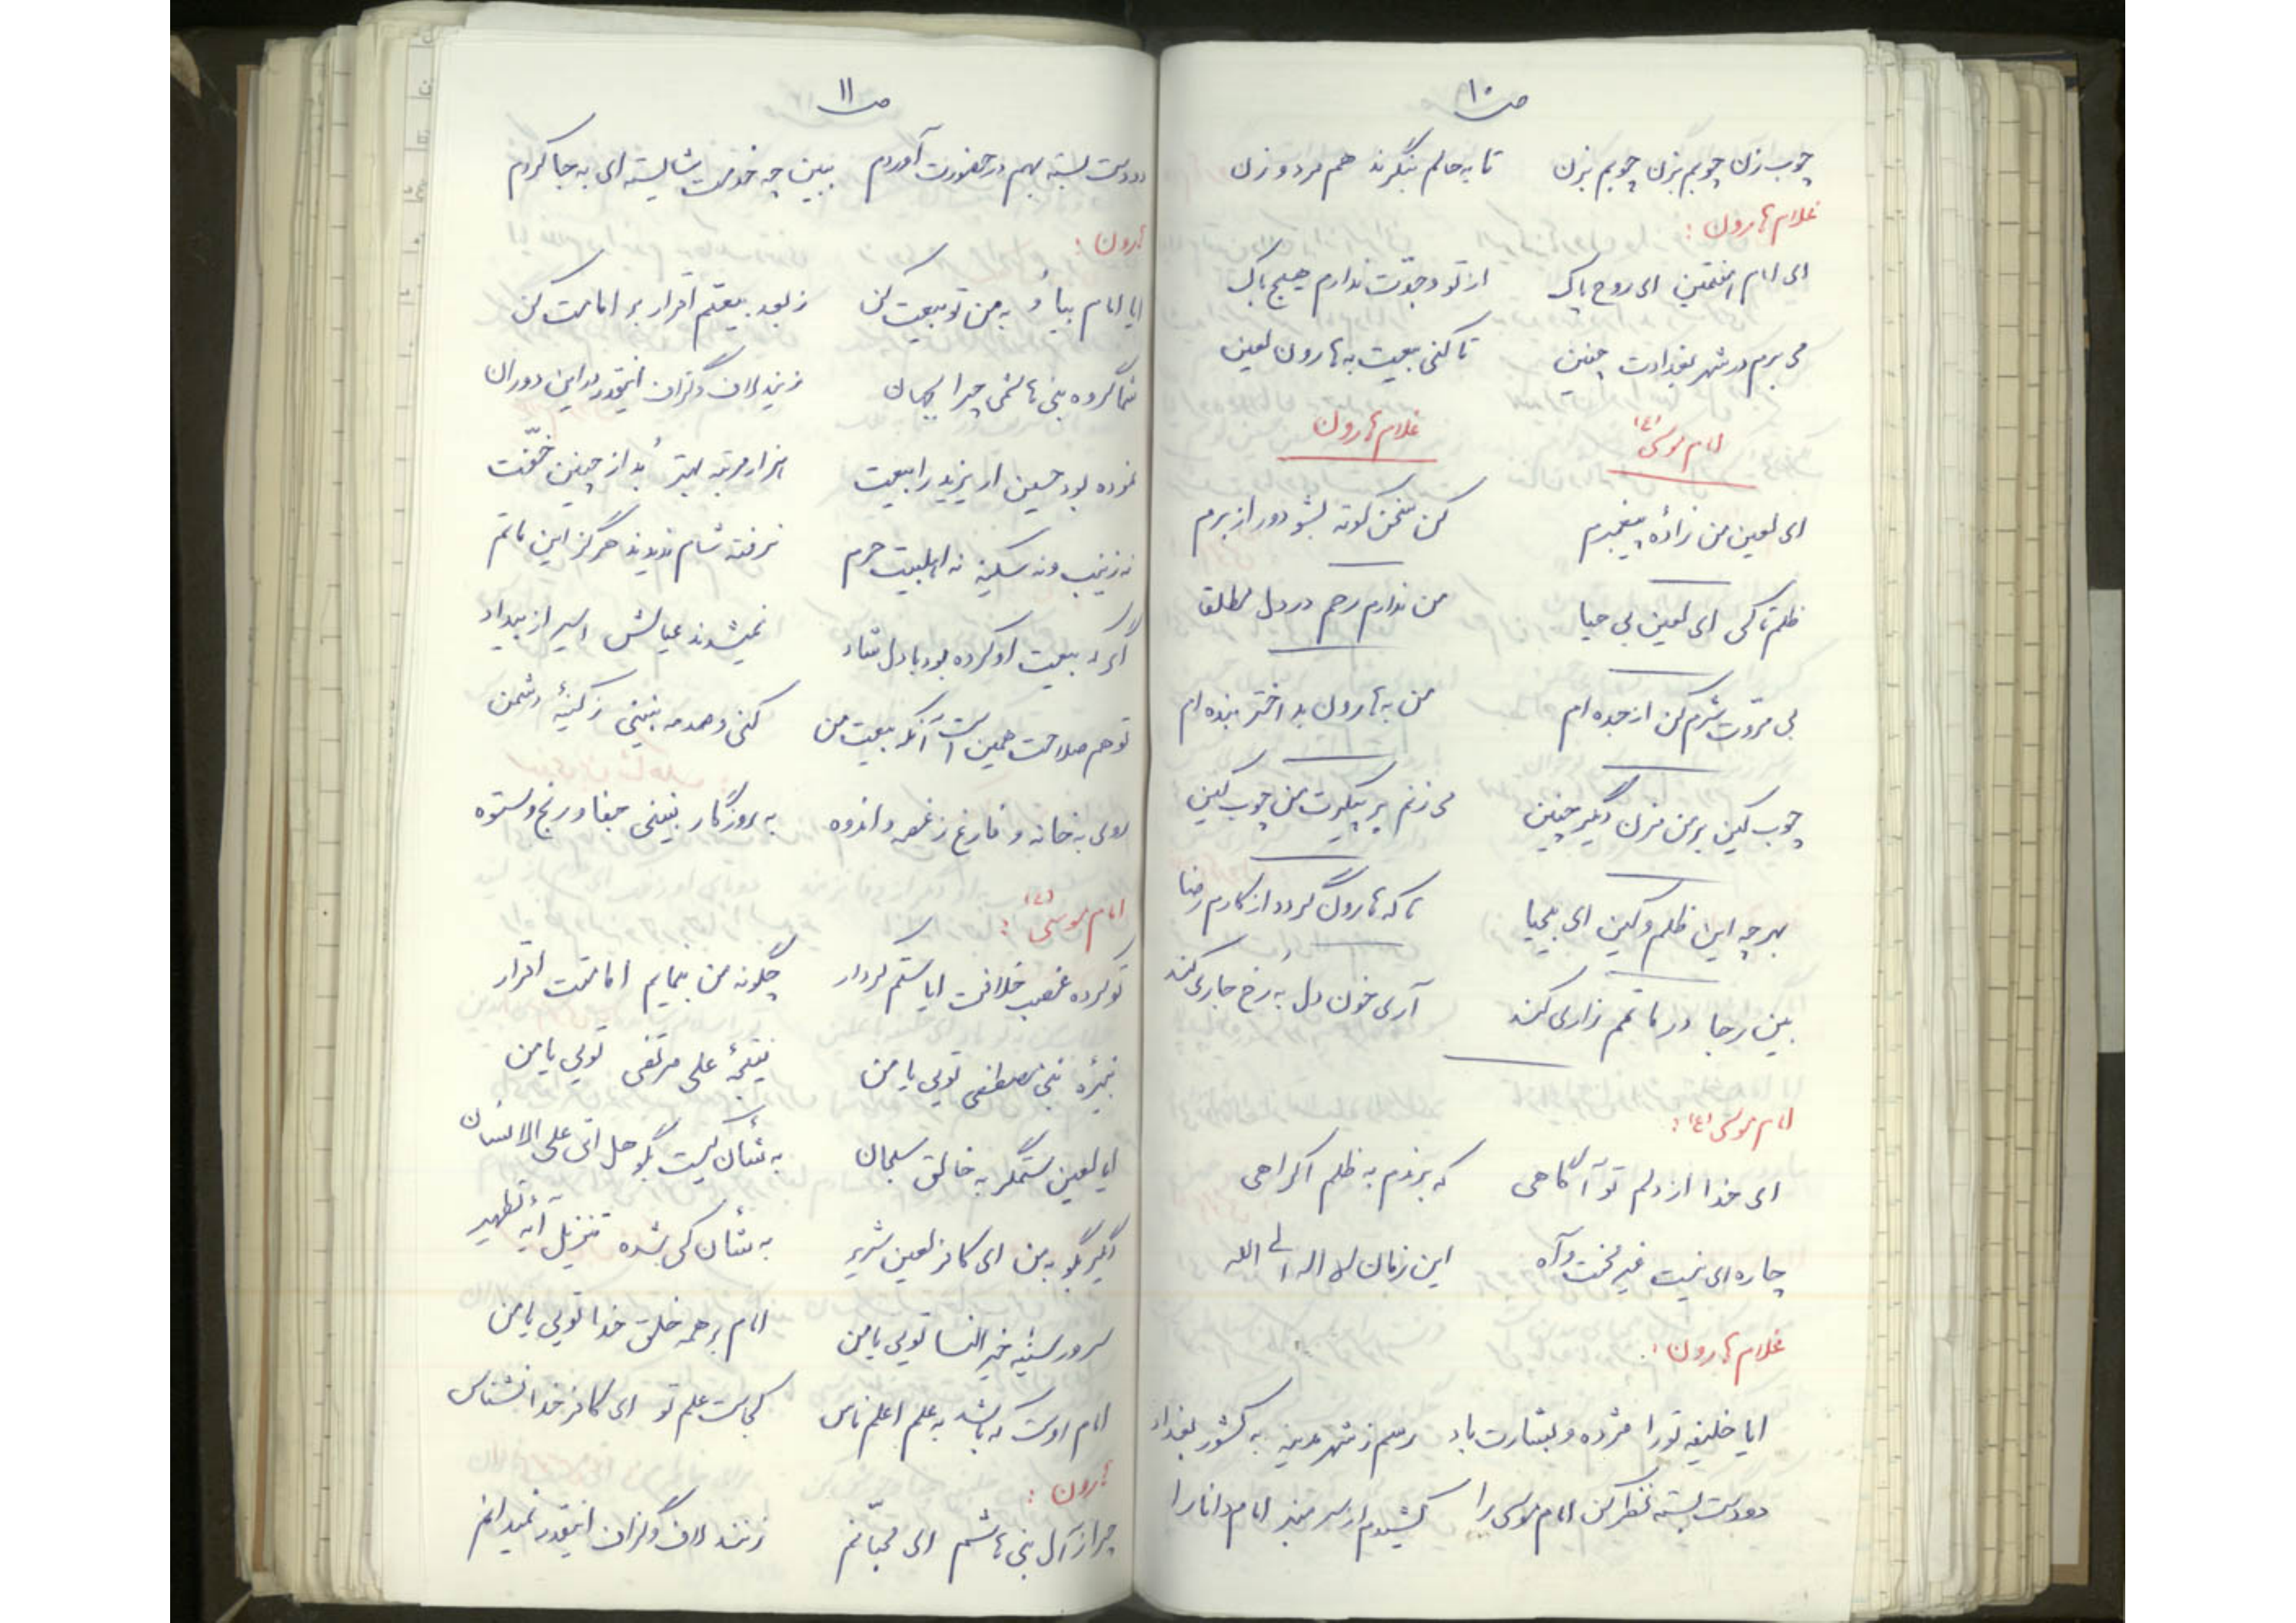 ص ۱۰
چوب زن چوبم بزن چوبم بزن تا به حالم بنگرند هم مرد و زن
غلام هارون :
ای امام المتقین ای روح پاک از تو و جدّت ندارم هیچ باک
می برم در شهر بغدادت چنین تا کنی بیعت به هارون لعین
امام موسی (ع) غلام هارون
ای لعین من زادهٔ پیغمبرم کن سخن کوته بشو دور از برم
ظلم تا کی ای لعین بی حیا من ندارم رحم در دل مطلقا
بی مروّت شرم کن از جده ام من به هارون بد اختر بنده ام
چوب کین بر من مزن دیگر چنین می زنم بر پیکرت من چوب کین
بهر چه این ظلم و کین ای بیحیا تا که هارون گردد از کارم رضا
بین رضا در ماتمم زاری کند آری خون دل به رُخ جاری کند
امام موسی (ع) :
ای خدا از دلم تو آگاهی که برندم به ظلم اکراهی
چاره ای نیست غیر محنت و آه این زمان لا اله الی الله
غلام هارون :
ایا خلیفه تو را مژده و بشارت باد رسم ز شهر مدینه به کشور بغداد
دو دست بسته نظر کن امام موسی را کشیدم از سر منبر امام دانا را
ص ۱۱
دو دست بسته بهم در حضورت آوردم ببین چه خدمت شایسته ای به جا کردم
هارون :
ایا امام بیا و به من تو بیعت کن ز بعد بیعتم اقرار بر امامت کن
شما گروه بنی هاشمی چرا به جهان زنید لاف و گزاف اینقدر در این دوران
نموده بود حسین ار یزید را بیعت هزار مرتبه بهتر بُد از چنین خفّت
نه زینب و نه سکینه نه اهلبیت حرم نرفته شام ندیدند هرگز این ماتم
اگر که بیعت او کرده بود با دل شاد نمیشدند عیالش اسیر از بیداد
تو هم صلاحت همین است آنکه بیعت من کنی و صدمه نبینی ز کینهٔ دشمن
روی به خانه و فارغ ز غصه و اندوه به روزگار نبینی جفا و رنج و ستوه
امام موسی (ع) :
تو کرده غصب خلافت ایا ستم کردار چگونه من بنمایم امامتت اقرار
نبیرهٔ نبی مصطفی تویی یا من نتیجهٔ علی مرتضی تویی یا من
ایا لعین ستمگر به خالق سبحان به شأن کیست بگو هل اتی علی الانسان
دیگر بگو به من ای کافر لعین شریر به شأن کی بشده تنزیل آیهٔ تطهیر
سرور سینه خیر النسا تویی یا من امام بر همه خلق خدا تویی یا من
امام اوست که باشد به علم اعلم ناس کجاست علم تو ای کافر خدا نشناس
هارون :
چرا ز آل بنی هاشم ای محبّانم زنند لاف و گزاف اینقدر نمیدانم